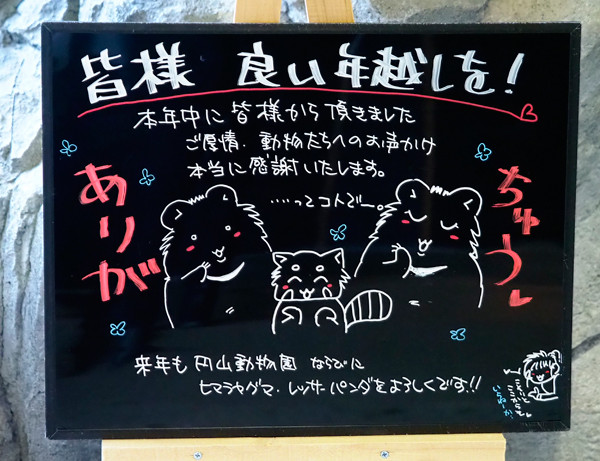 皆様 良い年越しを!
本年中に皆様から頂きました
ご厚情、動物たちへのお声かけ
本当に感謝いたします。
‥‥ってコトで〜。
ありが
ちゅう
来年も 円山動物園 ならびに
ヒマラヤグマ、レッサーパンダをよろしくです!!